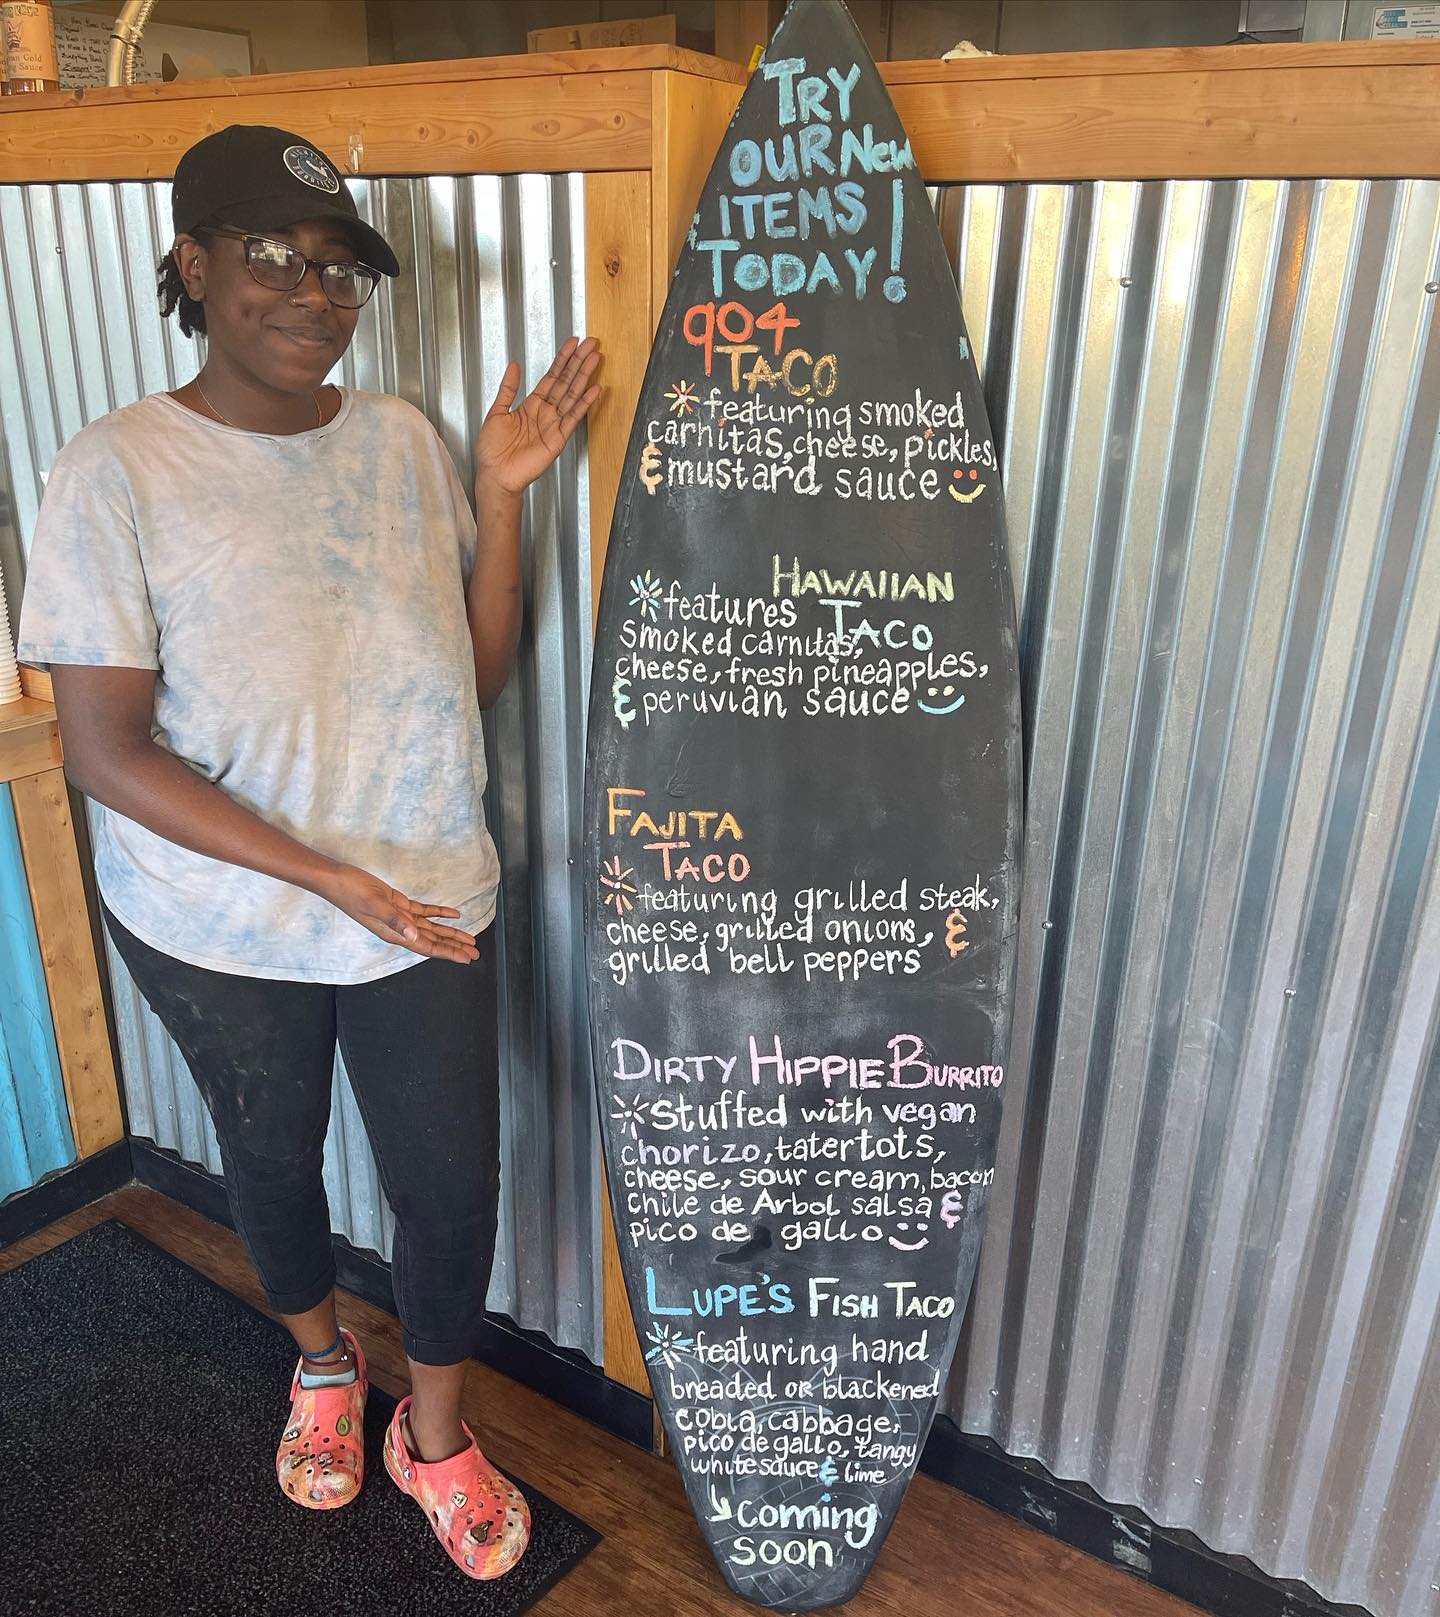 TRY
OUR New
ITEMS
TODAY!
904
TACO
featuring smoked
carnitas, cheese, pickles,
& mustard sauce
HAWAIIAN
TACO
features
smoked carnitas,
cheese, fresh pineapples,
& peruvian sauce
FAJITA
TACO
featuring grilled steak,
cheese, grilled onions, &
grilled bell peppers
DIRTY HIPPIE BURRITO
Stuffed with vegan
chorizo, tatertots,
cheese, sour cream, bacon
chile de Arbol salsa &
pico de gallo
LUPE'S FISH TACO
featuring hand
breaded or blackened
cobia, cabbage,
pico de gallo, tangy
white sauce & lime
coming
soon
Gold
Sauce